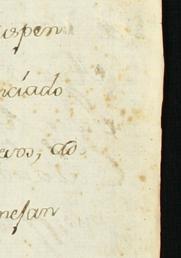 open
nciado
evos, do
nesan